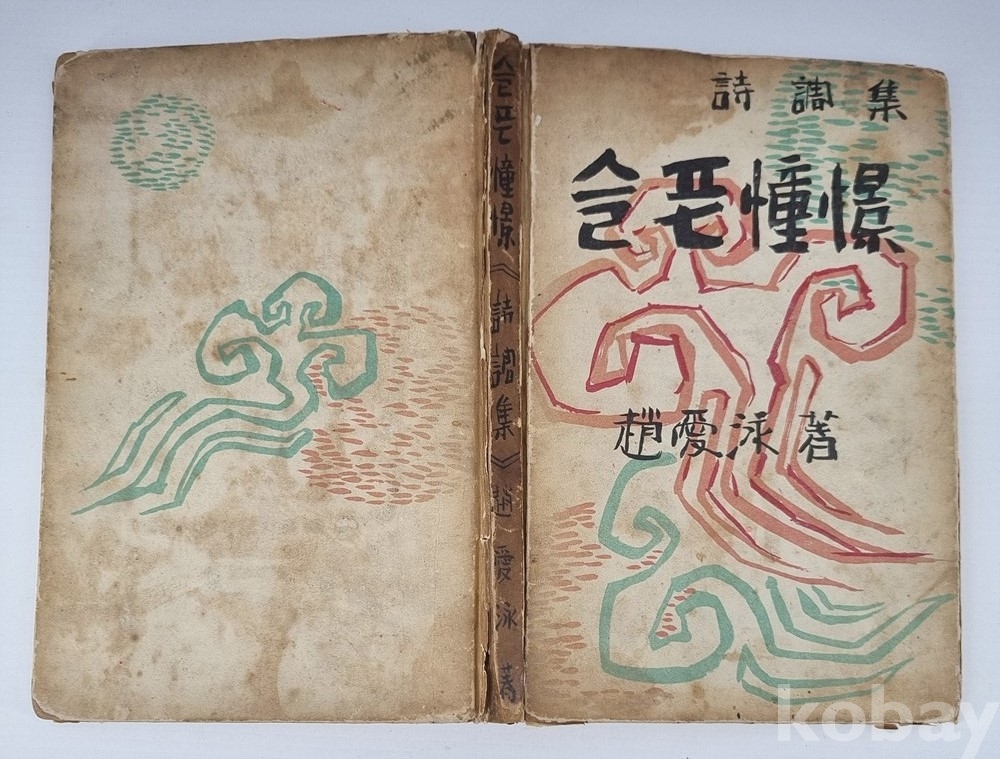 슬픈憧憬《詩調集》趙愛泳 著
詩調集
슬픈憧憬
趙愛泳 著
kobay